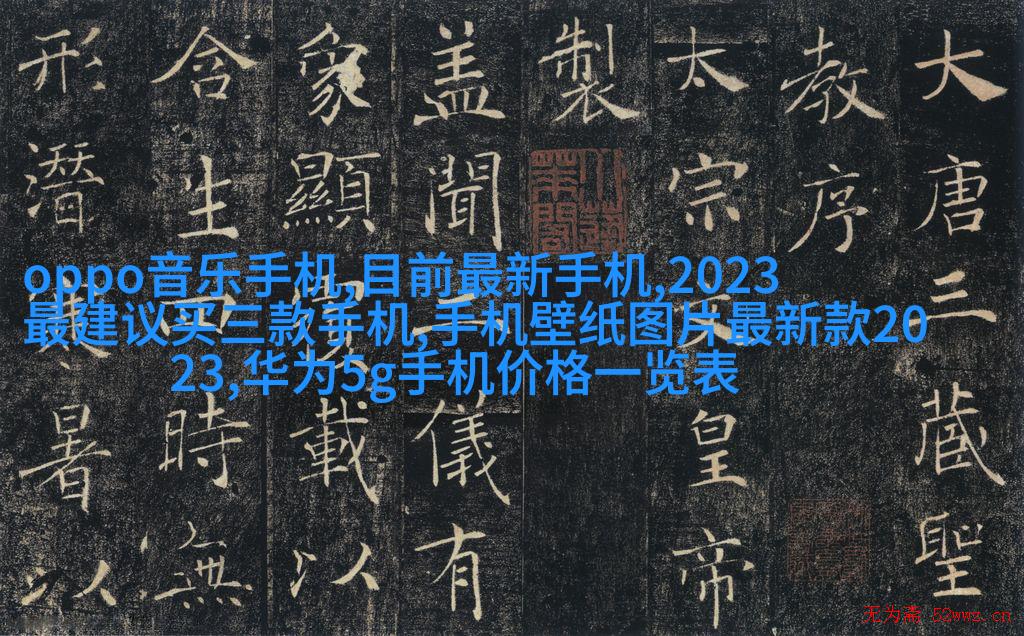 大唐三藏聖
教序
太宗文皇帝
製
盖聞二儀有
象顯覆載以
含生四時無
形潛寒暑以
oppo音乐手机,目前最新手机,2023
最建议买三款手机,手机壁纸图片最新款20
23,华为5g手机价格一览表
无为斋 52wwz.cn